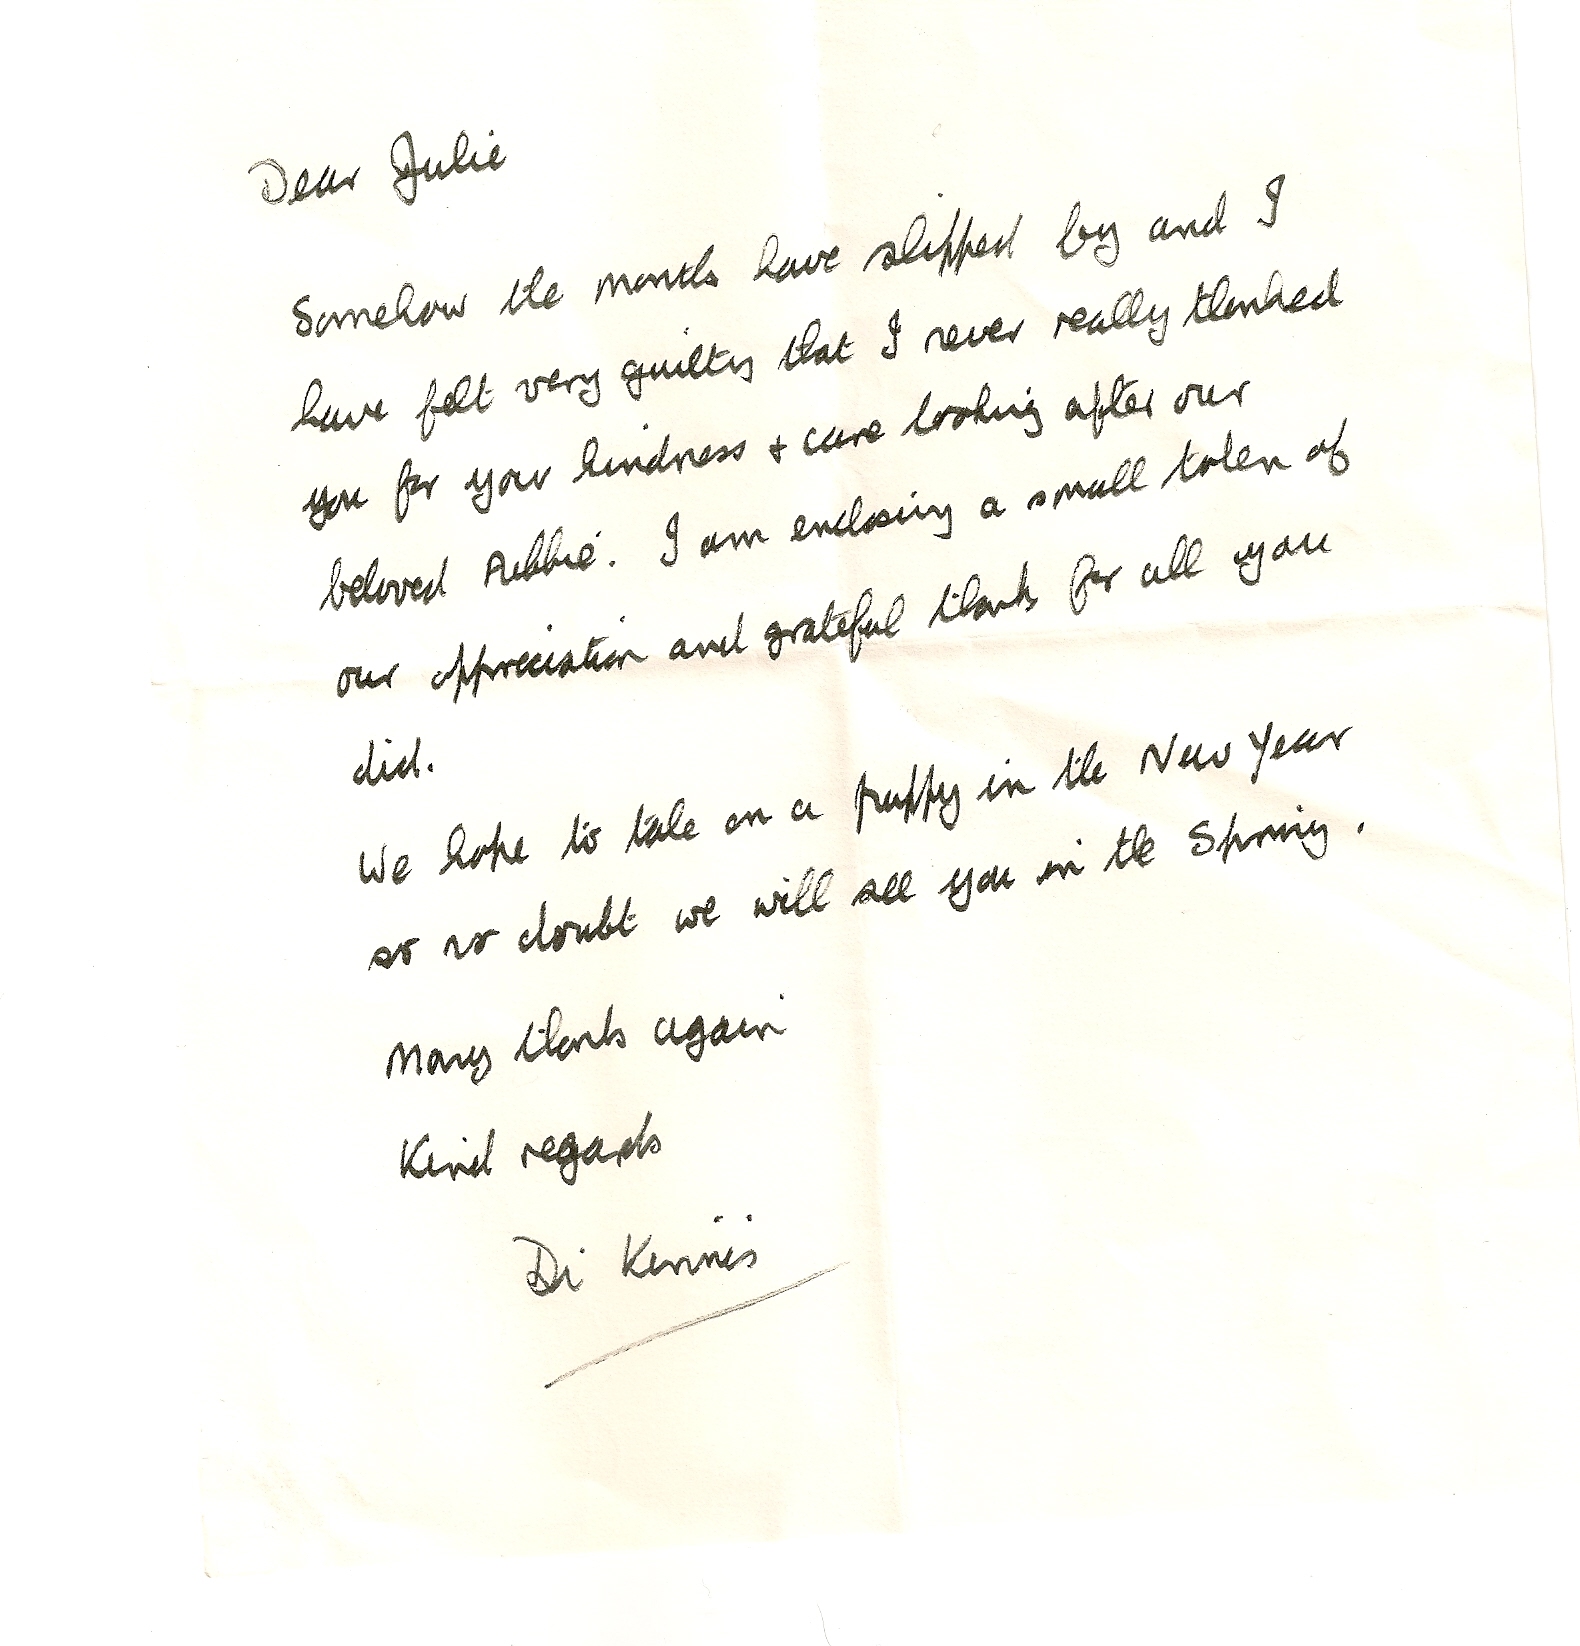 Dear Julie
Somehow the months have slipped by and I
have felt very guilty that I never really thanked
you for your kindness + care looking after our
beloved . I am enclosing a small token of
our appreciation and grateful thanks for all you
did.
We hope to take on a puppy in the New Year
so no doubt we will see you in the Spring.
Many thanks again
Kind regards
Di